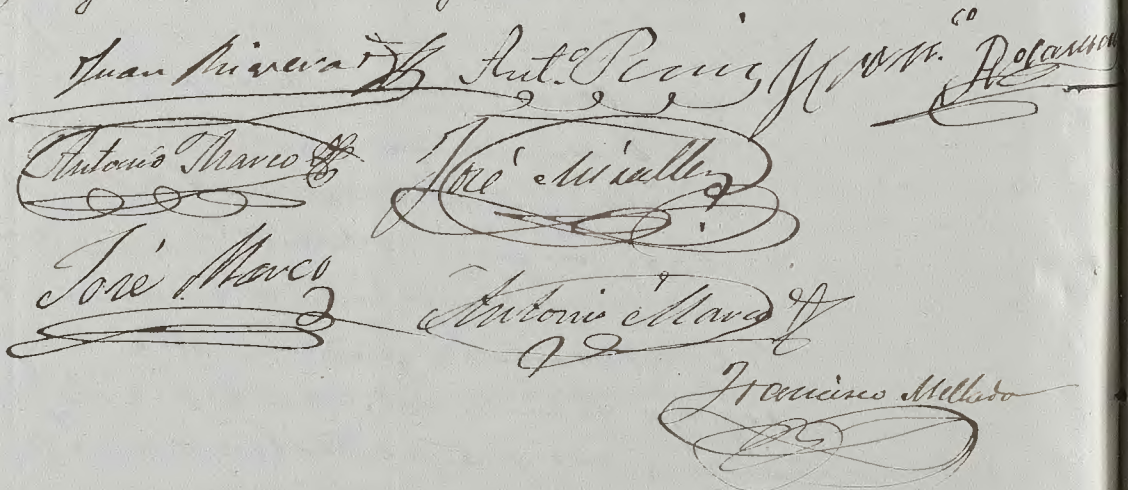 Juan Rivera Ant.º
Antonio Marco
José Miralles
José Marco
Antonio Marco
Francisco Mellado